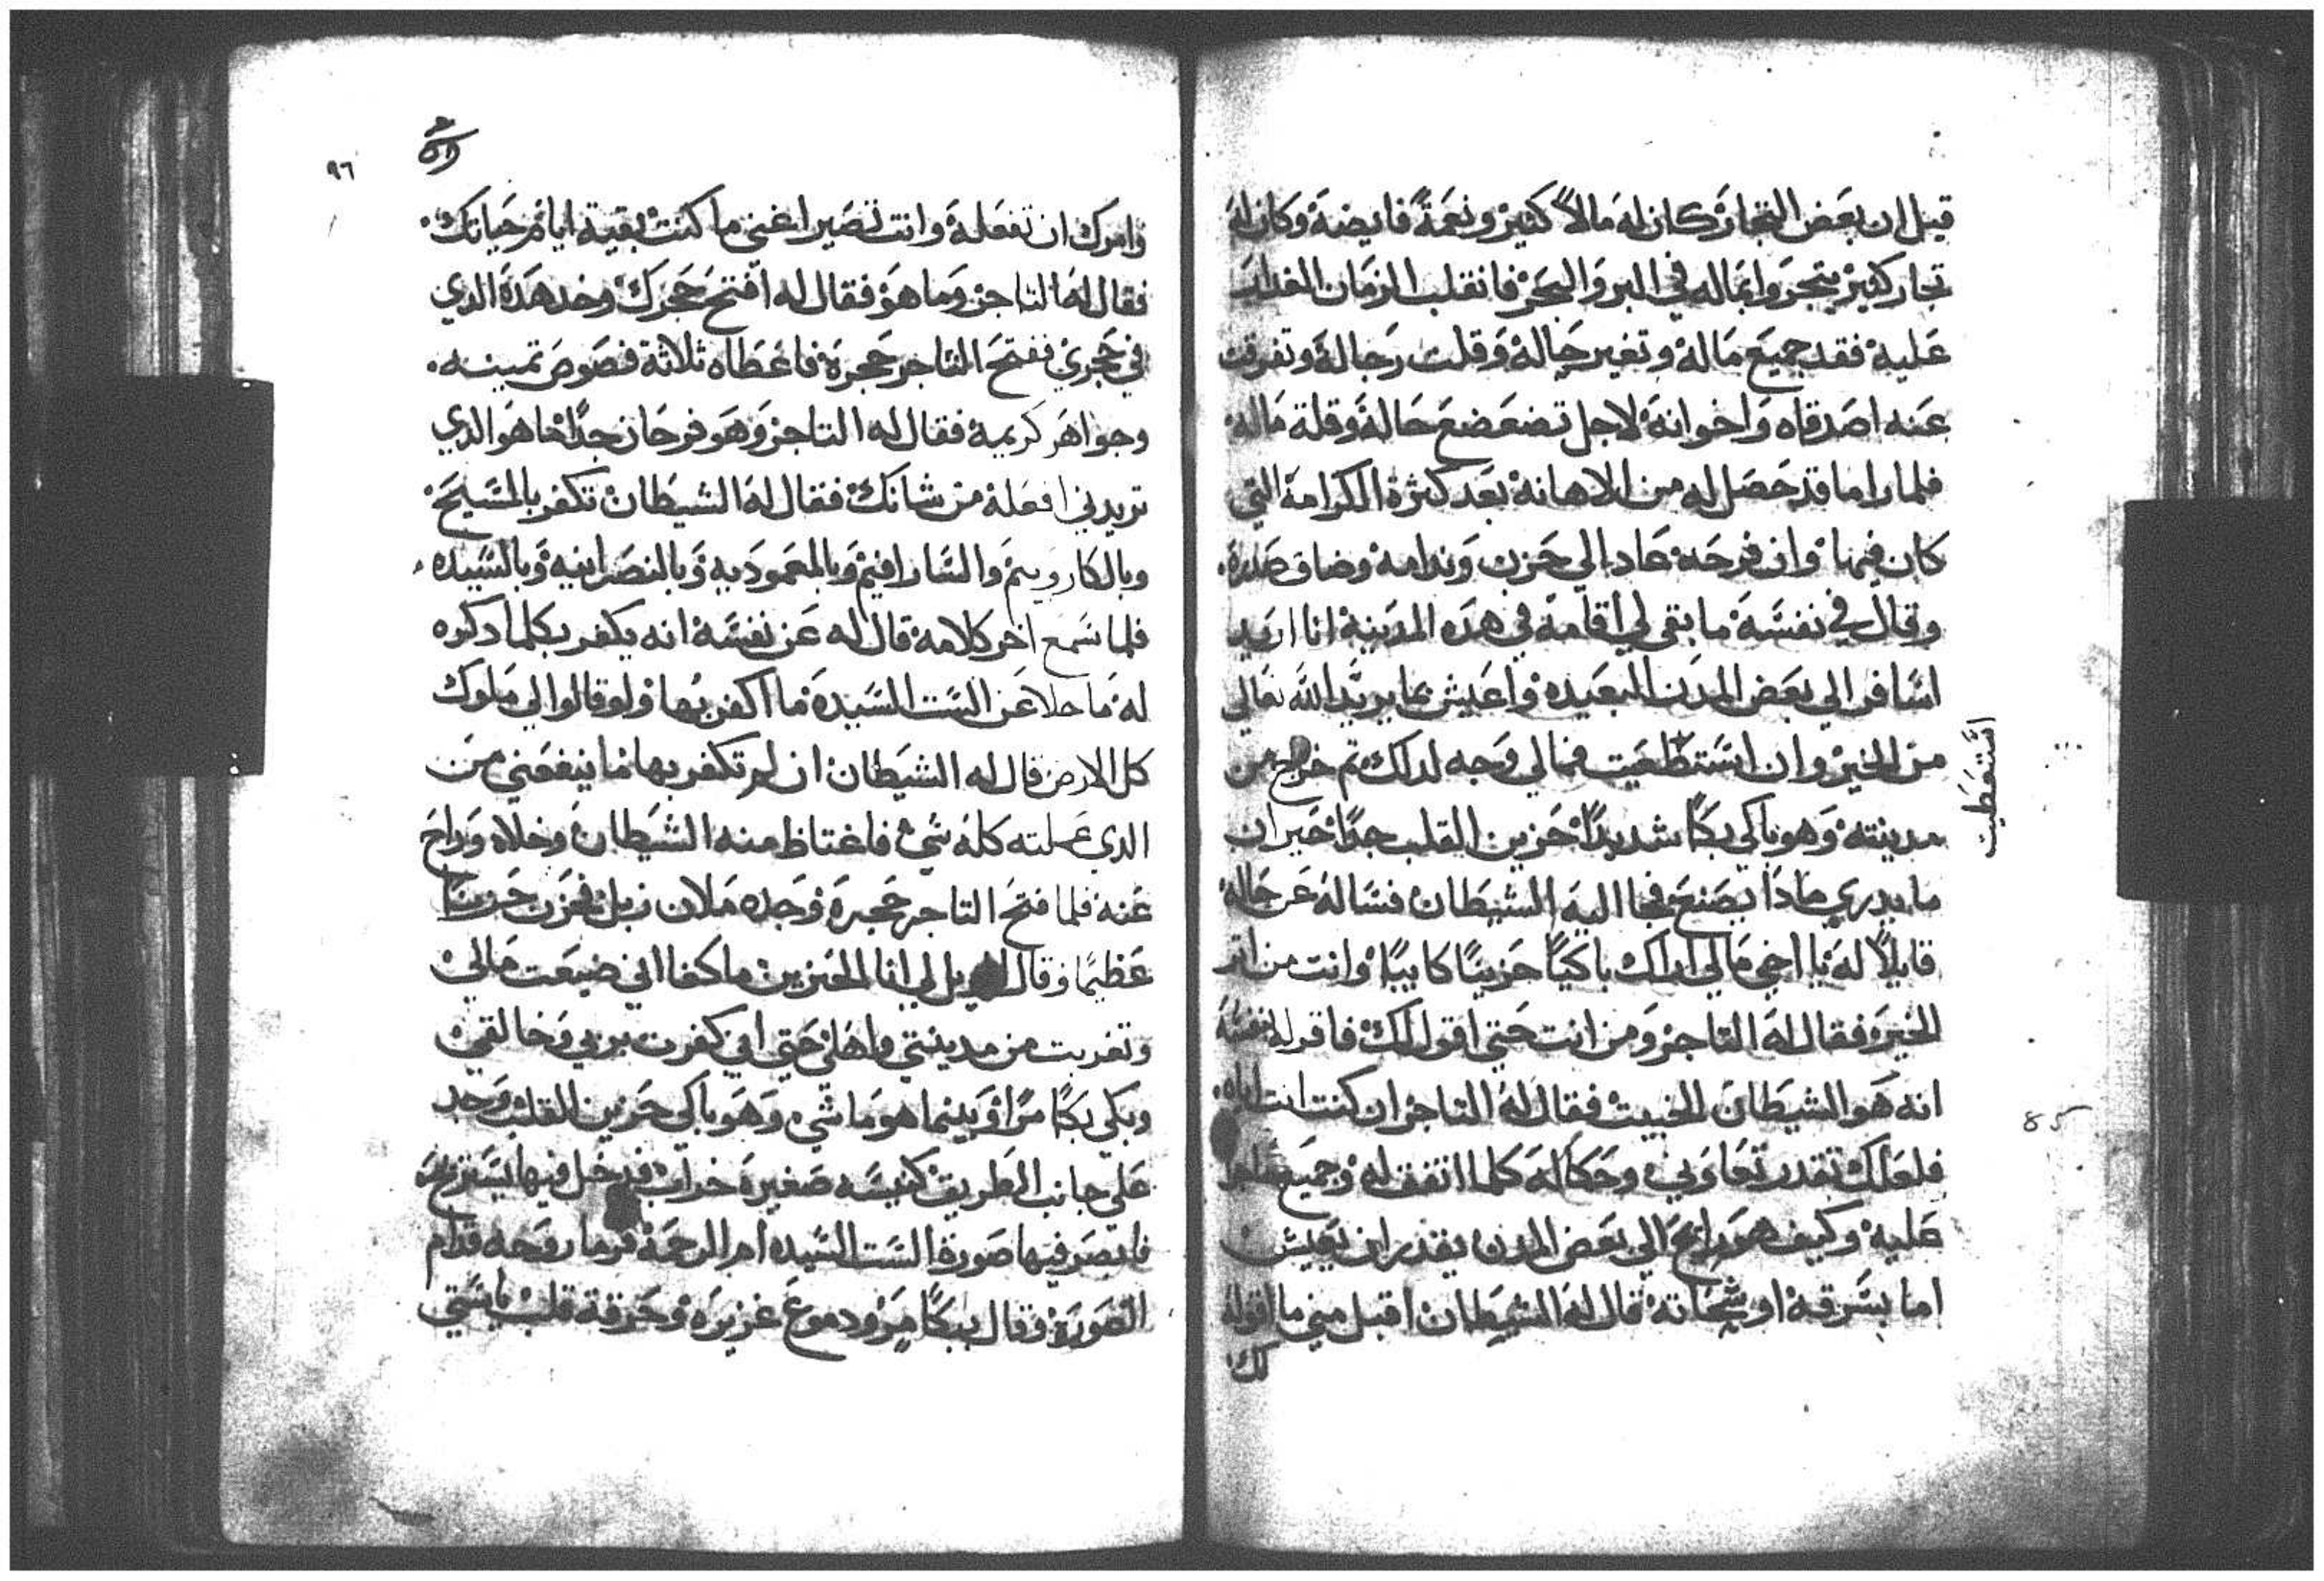 قيل ان بعض التجار كان له مالاً كثير ونعمةً فايضة وكان له
تجار كثير يتجروا بماله في البر والبحر فانقلب الزمان الغدار
عليه فقد جميع ماله وتغير حاله وقلت رجاله وتفرقت
عنه اصدقاه واخوانه لاجل تضعضع حاله وقلة ماله
فلما راا ما قد حصل له من الاهانه بعد كثرة الكرامة التي
كان فيها وان فرحه عاد الي حزن وندامه وضاق صدره
وقال في نفسه ما بقي لي اقامة في هذه المدينة انا اريد
اسافر الي بعض المدن البعيده واعيش بما يريد الله تعالي
من الخير وان استطعيت فمالي وجه لداك تم خرج من
استعطيت
مدينته وهو باكي بكاً شديداً حزين القلب جداً حيران
ما يدري مادا يصنع فجا اليه الشيطان فساله عن حاله
قايلاً له يا اخي مالي اراك باكياً حزيناً كايباً وانت من اتر
الخير فقال له التاجر ومن انت حتي اقول لك فاقر له نفسه
انه هو الشيطان الخبيث فقال له التاجر ان كنت انت اياه
فلعلك تقدر تعاوني وحكا له كلما اتفق له وجميع ماجرا
عليه وكيف هو رايح الي بعض المدن يقدر ان يعيش
اما بسرقه او شحاته قال له الشيطان اقبل مني ما اقوله
لك
٩٦
وامرك ان تفعله وانت تصير اغني ما كنت بقية ايام حياتك
فقال له التاجر وما هو فقال له افتح حجرك وخد هده الدي
في حجري ففتح التاجر حجره فاعطاه ثلاثة فصوص تمينه
وجواهر كريمة فقال له التاجر وهو فرحان جداً ما هو الدي
تريدني افعله من شانك فقال له الشيطان تكفر بالمسيح
وبالكارويم والسارافيم وبالمعموديه وبالنصرانيه وبالسيده
فلما سمع اخر كلامه قال له عن نفسه انه يكفر بكلما دكره
له ما خلا عن الست السيدة ما اكفر بها ولو قالوا لي ملوك
كل الارض قال له الشيطان ان لم تكفر بها ما ينفعني من
الدي عملته كله شي فاغتاظ منه الشيطان وخلاه وراح
عنه فلما فتح التاجر حجره وجده ملان زبل فحزن حزناً
عظيماً وقال الويل لي انا الحزين ما كفا اني ضيعت مالي
وتغربت من مدينتي واهلي حتي اني كفرت بربي وخالقي
وبكي بكاً مراً وبينما هو ماشي وهو باكي حزين القلب وجد
علي جانب الطريق كنيسه صغيره خراب فدخل فيها يستريح
فابصر فيها صورة الست السيده ام الرحمة فرما روحه قدام
الصورة وقال ببكاً مر ودموع غزيره وحرقة قلب ياستي
85